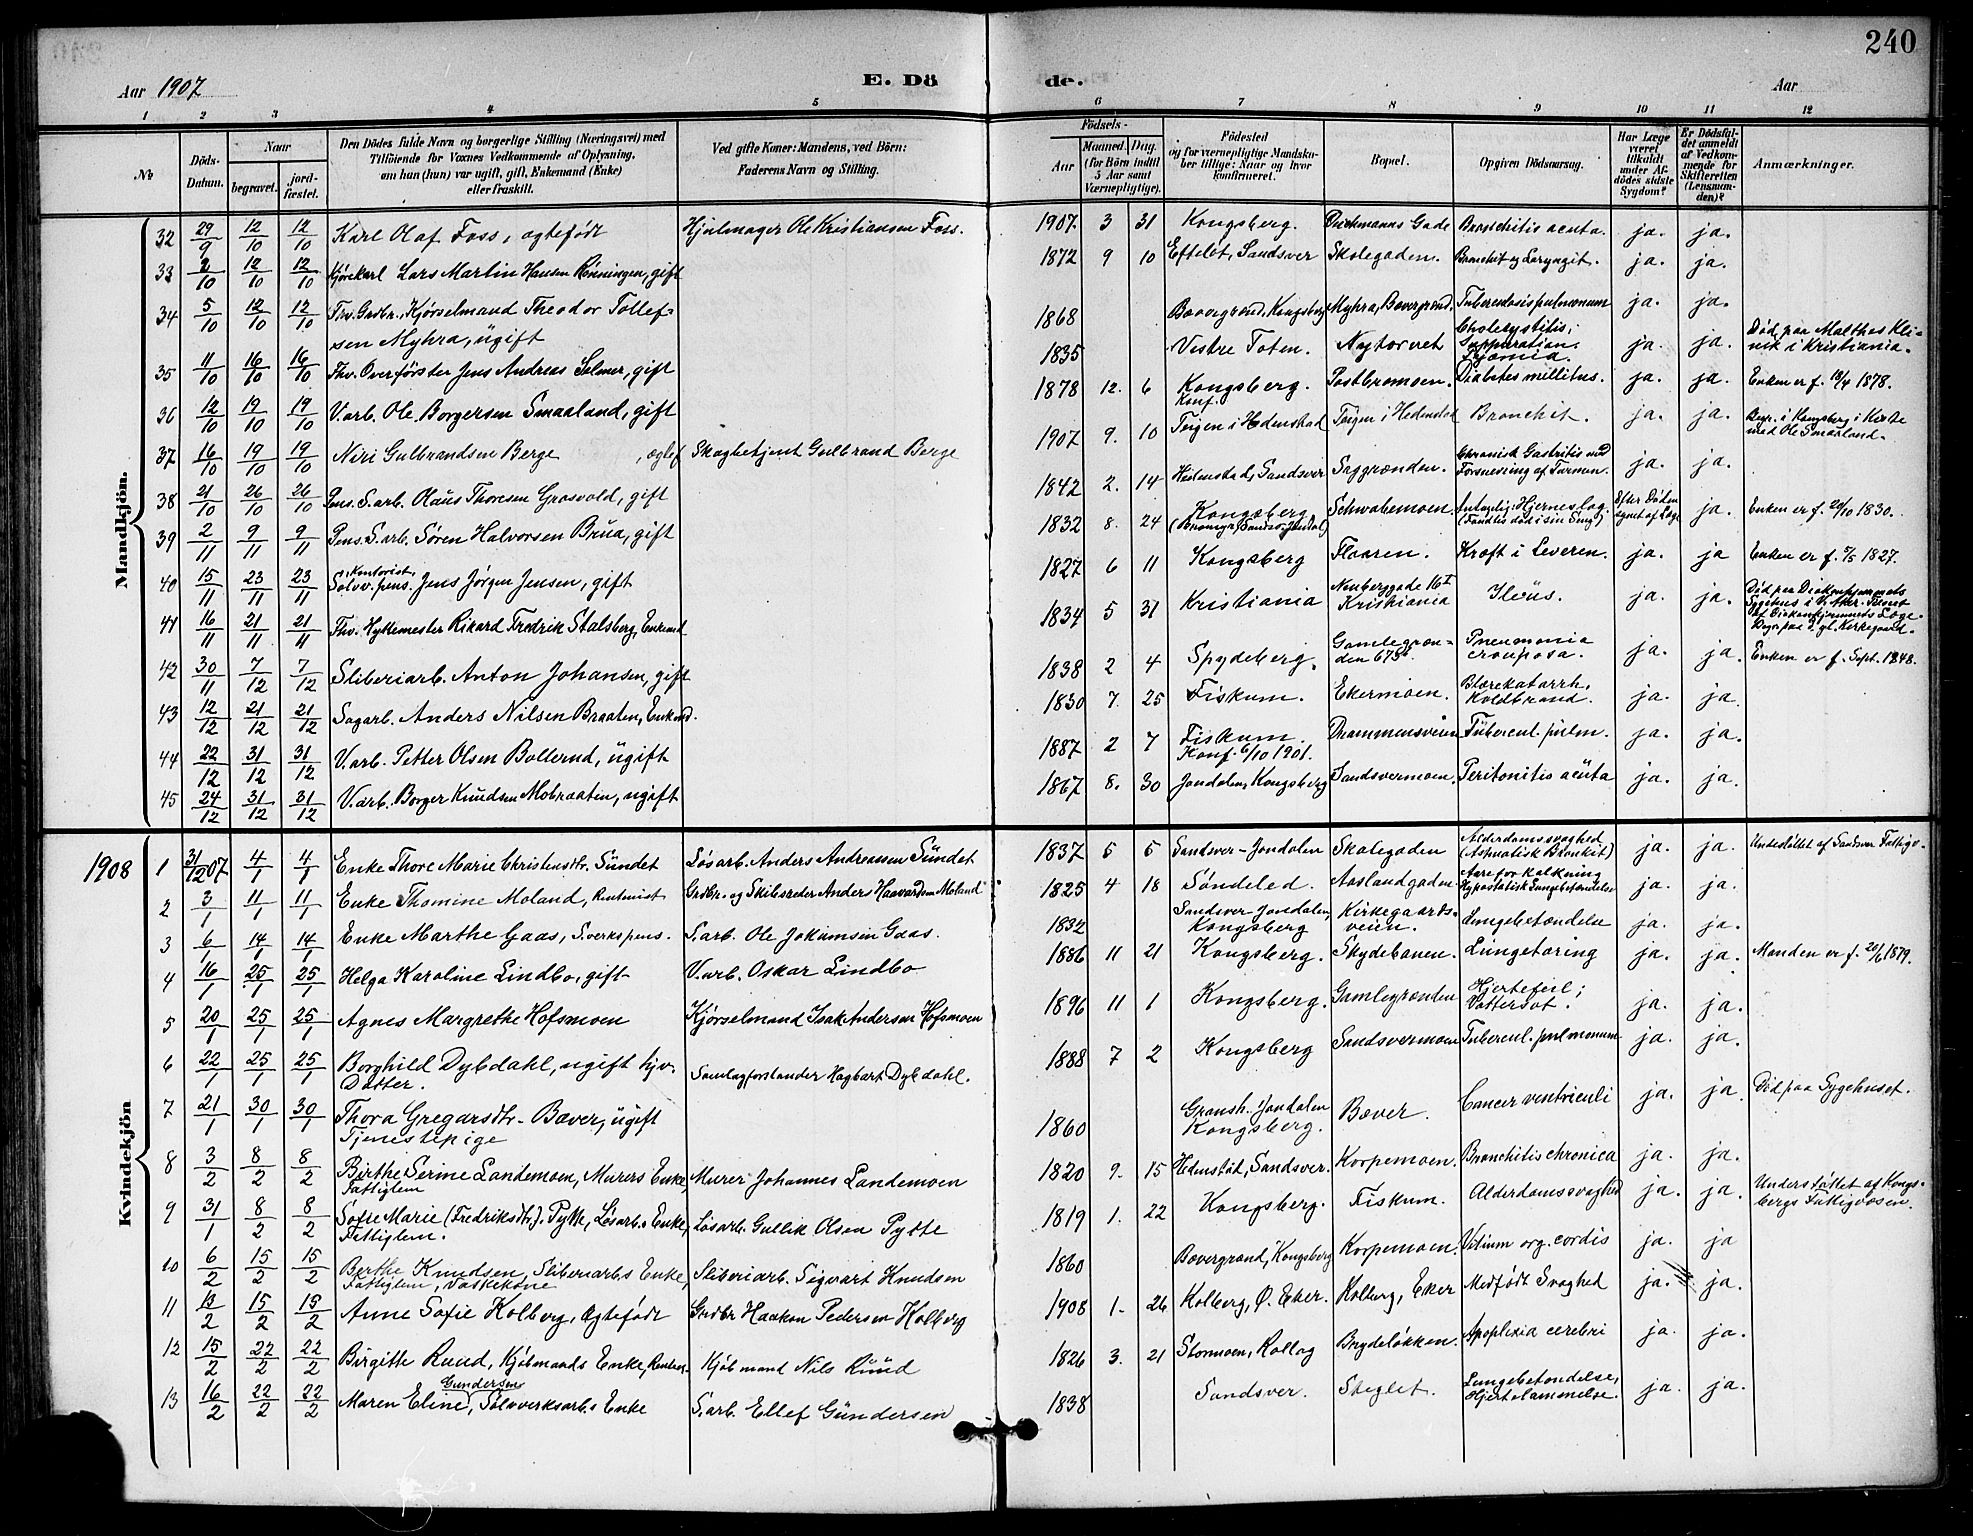 240
Aar 1907
E. Dö de.
Aar
1 2 3 4 5 6 7 8 9 10 11 12
No
Döds-Datum.
Naar
begravet.
jord-fæstet.
Den Dödes fulde Navn og borgerlige Stilling (Næringsvei) med
Tilföiende for Voxnes Vedkommende af Oplysning,
om han (hun) var ugift, gift, Enkemand (Enke)
eller fraskilt.
Ved gifte Koner: Mandens, ved Börn:
Faderens Navn og Stilling.
Födsels-
Aar
Maaned. Dag.
(for Börn indtil
5 Aar samt
Værnepligtige).
Födested
og for værnepligtige Mandska-
ber tillige: Naar og hvor
konfirmeret.
Bopæl.
Opgiven Dödsaarsag.
Har Læge
været
tilkaldt
under Af-
dödes sidste
Sygdom?
Er Dödsfal-
det anmeldt
af Vedkom-
mende for
Skifteretten
(Lensman-
den)?
Anmærkninger.
Mandkjön.
32 29/9 12/10 12/10 Karl Olaf Foss, ægtefödt Hjulmager Ole Kristiansen Foss. 1907. 3 31 Kongsberg. Gade Bronchitis acuta. ja. ja.
33 2/10 12/10 12/10 Kjörekarl Lars Martin Hansen Rönningen, gift 1872 9 10 Efteløt, Sandsver Skolegaden. Bronchit og Laryngit. ja. ja.
34 5/10 12/10 12/10 Fhv. Grdbr., Kjørselmand Theodor Tollef-
sen Myhra, ugift 1868 Bævergrænd, Kongsberg Myhra, Bævergrænd. Tuberculosis pulmonum ja. ja.
35 11/10 16/10 16/10 Fhv. Overförster Jens Andreas Selmer, gift 1835 Vestre Toten. Nytorvet Cholecystitis; Suppuration. Pyæmia. ja. ja. Död paa Malthes Kli-
nik i Kristiania.
36 12/10 19/10 19/10 V.arb. Ole Borgersen Smaaland, gift 1878 12. 6 Kongsberg. Konf. Postbromoen. Diabetes mellitus. ja. ja. Enken er f. 18/4 1878.
37 16/10 19/10 19/10 Niri Gulbrandsen Berge, ægtef Skogbetjent Gulbrand Berge 1907 9. 10 Teigen i Hedenstad Teigen i Hedenstad Bronchit. ja. ja. Begr. i Kongsberg i Kiste
med Ole Smaaland.
38 21/10 26/10 26/10 Pens. S.arb. Olaus Thoresen Grosvold, gift 1842 2. 14 Hedenstad, Sandsver Saggrænden. Chronisk Gastritis med
Forsnevring af Tarmen. ja. ja.
39 2/11 9/11 9/11 Pens. S.arb. Sören Halvorsen Brua, gift 1832 8. 24 Kongsberg Schwabemoen. Antagelig: Hjerneslag.
(Fandtes död i sin Seng) Efter Döden
synet af Læge ja. Enken er f. 20/10 1830.
40 15/11 23/11 23/11 Kontorist,
Sölvv.pens. Jens Jørgen Jensen, gift 1827 6 11 Kongsberg Flaaren. Kræft i Leveren. ja. ja Enken er f. 1827.
41 16/11 21/11 21/11 Fhv. Hyttemester Rikard Fredrik Stalsberg, Enkemd 1834 5 31 Kristiania Neuberggade 16 I
Kristiania Ileus. ja. ja. Död paa Diakonhjemmets
Sygehus i V. Aker.
42 30/11 7/12 7/12 Sliberiarb. Anton Johansen, gift 1838 2 4 Spydeberg. Gamlegræn-
den 675. Pneumonia
crouposa. ja. ja. Enken er f. Sept. 1848.
43 12/12 21/12 21/12 Sagarb. Anders Nilsen Braaten, Enkemd. 1830 7. 25 Fiskum. Ekermoen. Blærekatarrh.
Koldbrand. ja. ja.
44 22/12 31/12 31/12 V.arb. Petter Olsen Bollerud, ugift 1887 2 7 Fiskum.
Konf. 6/10 1901. Drammensveien Tubercul. pulm. ja. ja.
45 24/12 31/12 31/12 V.arb. Borger Knudsen Mobraaten, ugift 1867 8. 30 Jondalen, Kongsberg Sandsvermoen. Peritonitis acuta ja. ja.
1908
Kvindekjön
1 31/12 07 4/1 4/1 Enke Thore Marie Christensdtr. Sundet Løsarb. Anders Andreasen Sundet 1837 5 5 Sandsver-Jondalen Skolegaden Alderdomssvaghed
(Asthmatisk Bronkit) ja. ja. Understöttet af Sandsver Fattigv.
2 3/1 11/1 11/1 Enke Thomine Moland, Rentenist Grdbr. og Skibsreder Anders Haavardsen Moland 1825 4 18 Söndeled. Aaslandgaden Aareforkalkning
Hypostatisk Lungebetændelse ja. ja.
3 6/1 14/1 14/1 Enke Marthe Gaas, S.verkspens. S.arb. Ole Jokumsen Gaas. 1832 Sandsver Jondalen,
Kongsberg Kirkegaards-
veien. Lungebetændelse ja. ja.
4 16/1 25/1 25/1 Helga Karoline Lindbo, gift V.arb. Oskar Lindbo 1886 11 21 Kongsberg. Skydebanen. Lungetæring ja. ja. Manden er f. 20/6 1879.
5 20/1 25/1 25/1 Agnes Margrethe Hofsmoen Kjørselmand Isak Andersen Hofsmoen 1896 11 1 Kongsberg. Gamlegrænden Hjertefeil;
Vattersot. ja. ja.
6 22/1 25/1 25/1 Borghild Dybdahl, ugift hjv.
Datter. Samlagforstander Hagbart Dybdahl. 1888 7 2 Kongsberg Sandsvermoen Tubercul. pulmonum ja. ja.
7 21/1 30/1 30/1 Thora Gregarsdtr. Bæver, ugift
Tjenestepige 1860 Gransh. Jondalen
Kongsberg. Bæver. Cancer ventriculi ja. ja. Död paa Sygehuset.
8 3/2 8/2 8/2 Birthe Serine Landemoen, Murers Enke,
Fattiglem Murer Johannes Landemoen 1820 9. 15 Hedenstad, Sandsver. Korpemoen. Bronchitis chronica ja. ja.
9 31/1 8/2 8/2 Sofie Marie (Fredriksdtr.) Pytte, Løsarb.s Enke,
Fattiglem. Løsarb. Gullik Olsen Pytte 1819 1. 22 Kongsberg. Fiskum. Alderdomssvaghed ja. ja. Understöttet af Kongs-
bergs Fattigvæsen.
10 6/2 15/2 15/2 Berthe Knudsen, Sliberiarb.s Enke,
Fattiglem, Vaskekone Sliberiarb. Sigvart Knudsen 1860 Bævergrænd, Kongsberg Korpemoen. Vitium org. cordis ja. ja
11 13/2 15/2 15/2 Anne Sofie Kolberg, ægtefödt Grdbr Haakon Pedersen Kolberg 1908 1. 26 Kolberg, Ø. Eker. Kolberg, Eker Medfödt Svaghed ja. ja.
12 15/2 22/2 22/2 Birgitte Ruud, Kjöbmands Enke, Kjöbmand Nils Ruud 1826 3. 21 Stormoen, Rollag Brydeløkken. Apoplexia cerebri ja. ja.
13 16/2 22/2 22/2 Maren Eline Gundersen, Sölvverksarb.s Enke S.arb. Ellef Gundersen 1838 Sandsver. Steglet. Lungebetændelse,
Hjertelammelse. ja. ja.